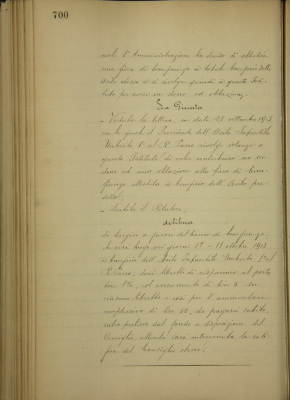 700
nale l'Amministrazione ha deciso di allestire
una fiera di beneficenza a totale beneficio dell'
Asilo stesso e si rivolge quindi a questo Isti-
tuto per avere un dono od oblazione,
La Giunta
- Veduta la lettera, in data 23 settembre 1913,
con la quale il Presidente dell'Asilo Infantile
Umberto I° al R. Parco rivolge istanza a
questo Istituto di voler contribuire con un
dono od una oblazione alla fiera di bene-
ficenza allestita a beneficio dell'Asilo pre-
detto;
- Sentito il Relatore,
delibera
di largire a favore del banco di beneficenza
che avrà luogo nei giorni 12 - 13 ottobre 1913
a beneficio dell'Asilo Infantile Umberto I° al
R. Parco, dieci libretti di risparmio al porta-
tore 5%, col versamento di lire 5 su
ciascun libretto e così per l'ammontare
complessivo di lire 50, da pagarsi subito,
salvo prelievo dal fondo a disposizione del
Consiglio, allorché sarà intervenuta la rati-
fica del Consiglio stesso.